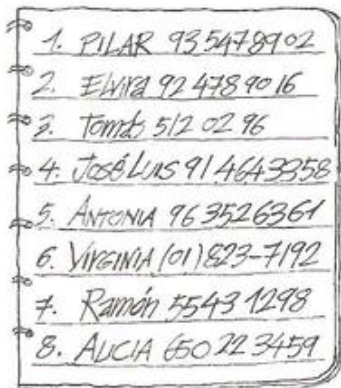 1. PILAR 93 5478902
2. Elvira 92 478 90 16
3. Tomás 512 02 96
4. José Luis 91 4643358
5. ANTONIA 96 3526361
6. VIRGINIA (01) 823-7192
7. Ramón 5543 1298
8. ALICIA 650 22 3459